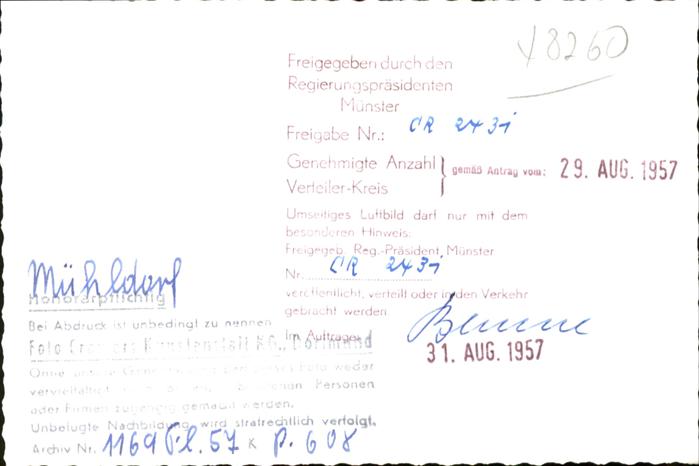 48260
Freigegeben durch den
Regierungspräsidenten
Münster
Freigabe Nr.: CR 2431
Genehmigte Anzahl } gemäß Antrag vom: 29. AUG. 1957
Verteiler-Kreis
Umseitiges Luftbild darf nur mit dem
besonderen Hinweis:
Freigegeb. Reg.-Präsident, Münster
Nr. CR 2431
veröffentlicht, verteilt oder in den Verkehr
gebracht werden
Im Auftrage:
31. AUG. 1957
Mühldorf
Honorarpflichtig
Bei Abdruck ist unbedingt zu nennen
Foto Cramers Kunstanstalt KG., Dortmund
Ohne unsere Genehmigung darf dieses Foto weder
vervielfältigt noch dritten Personen
oder Firmen zugängig gemacht werden.
Unbefugte Nachbildung wird strafrechtlich verfolgt.
Archiv Nr. 1169 Pl. 57 K P. 608